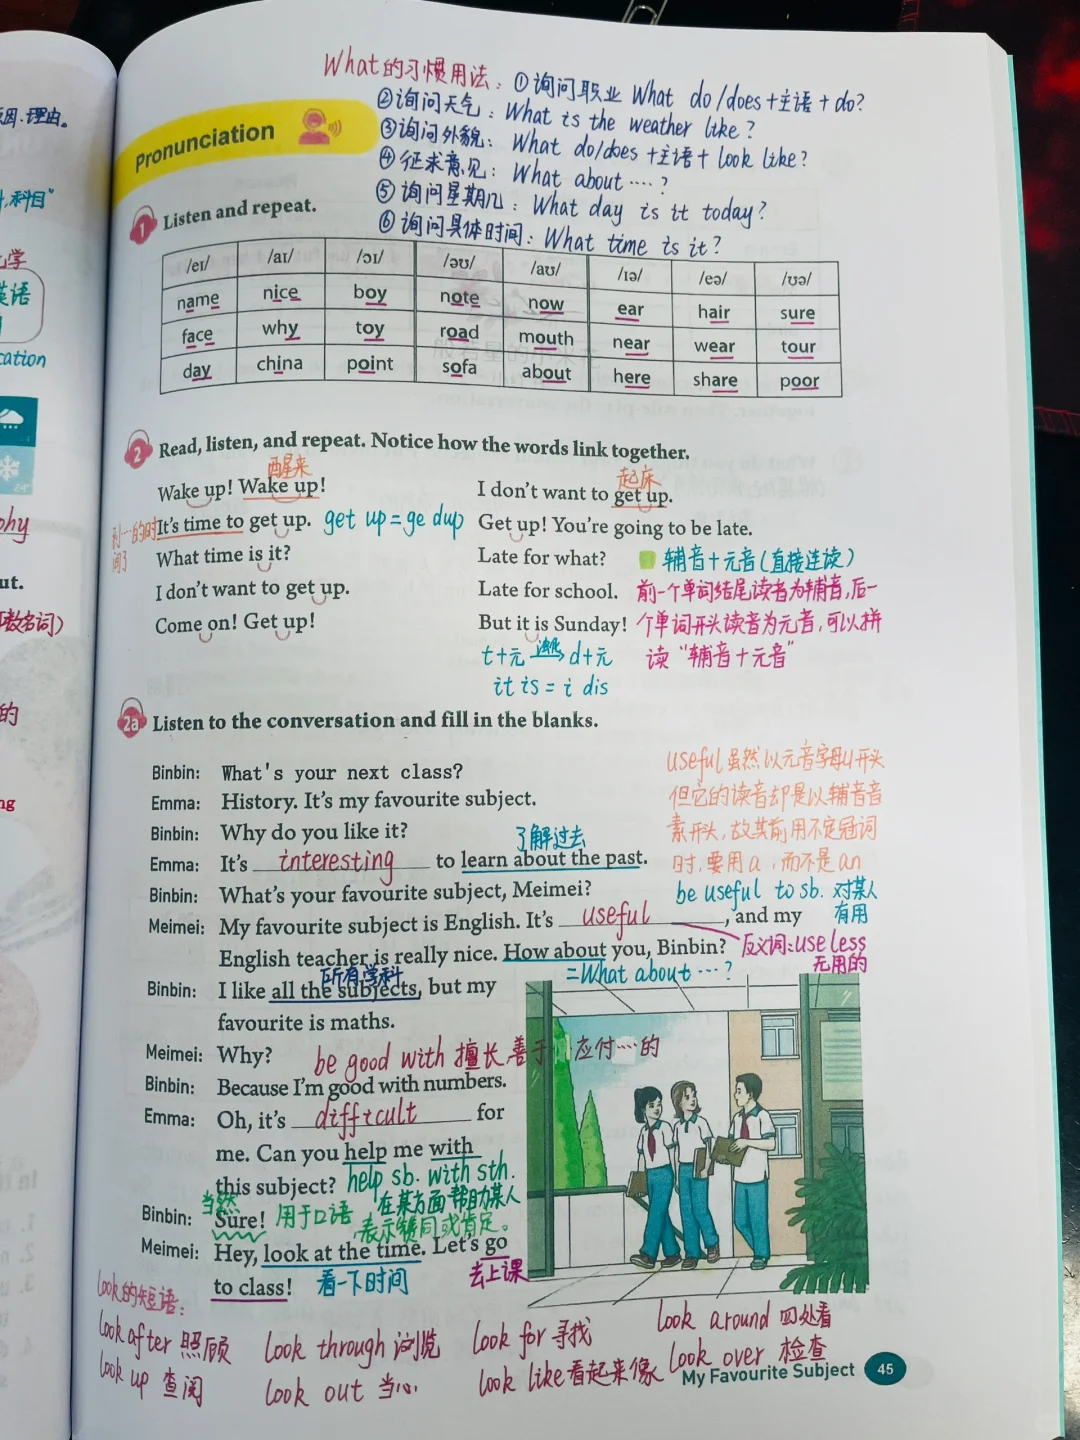 What的习惯用法：①询问职业 What do/does+主语+do?
②询问天气：What is the weather like?
③询问外貌：What do/does+主语+look like?
④征求意见：What about……?
⑤询问星期几：What day is it today?
⑥询问具体时间：What time is it?
Pronunciation
1 Listen and repeat.
/eɪ/ /aɪ/ /ɔɪ/ /əʊ/ /aʊ/ /ɪə/ /eə/ /ʊə/
name nice boy note now ear hair sure
face why toy road mouth near wear tour
day china point sofa about here share poor
2 Read, listen, and repeat. Notice how the words link together.
醒来
Wake up! Wake up!
到…的时间了
It's time to get up. get up=ge dup
What time is it?
I don't want to get up.
Come on! Get up!
起床
I don't want to get up.
Get up! You're going to be late.
Late for what?
Late for school.
But it is Sunday!
辅音+元音(直接连读)
前一个单词结尾读音为辅音,后一
个单词开头读音为元音,可以拼
读"辅音+元音"
t+元 d+元
it is = i dis
2a Listen to the conversation and fill in the blanks.
Binbin: What's your next class?
Emma: History. It's my favourite subject.
Binbin: Why do you like it?
了解过去
Emma: It's interesting to learn about the past.
Binbin: What's your favourite subject, Meimei?
Meimei: My favourite subject is English. It's useful, and my
English teacher is really nice. How about you, Binbin?
=What about…?
所有学科
Binbin: I like all the subjects, but my
favourite is maths.
Meimei: Why?
be good with 擅长,善于 应付…的
Binbin: Because I'm good with numbers.
Emma: Oh, it's difficult for
me. Can you help me with
this subject? help sb. with sth.
在某方面帮助某人
当然
Binbin: Sure! 用于口语
,表示赞同或肯定。
Meimei: Hey, look at the time. Let's go
to class! 看一下时间 去上课
useful虽然以元音字母u开头
但它的读音却是以辅音音
素开头,故其前用不定冠词
时,要用a,而不是an
be useful to sb. 对某人
有用
反义词:useless
无用的
look的短语：
look after 照顾 look through 浏览 look for 寻找 look around 四处看
look up 查阅 look out 当心 look like 看起来像 look over 检查
My Favourite Subject 45
因.理由。
科目"
化学
英语
cation
phy
ut.
可数名词)
的
ng